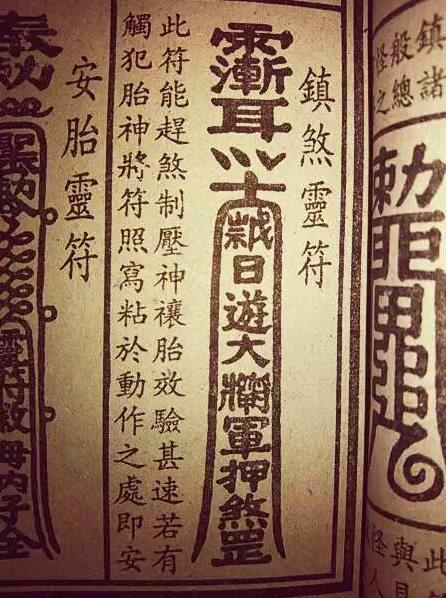 鎮諸
般總
怪之
勅
鎮煞靈符
漸耳
日遊大將軍押煞罡
此符能趕煞制壓神禳胎效驗甚速若有
觸犯胎神將符照寫粘於動作之處即安
安胎靈符
奉勅
靈符救母內子全